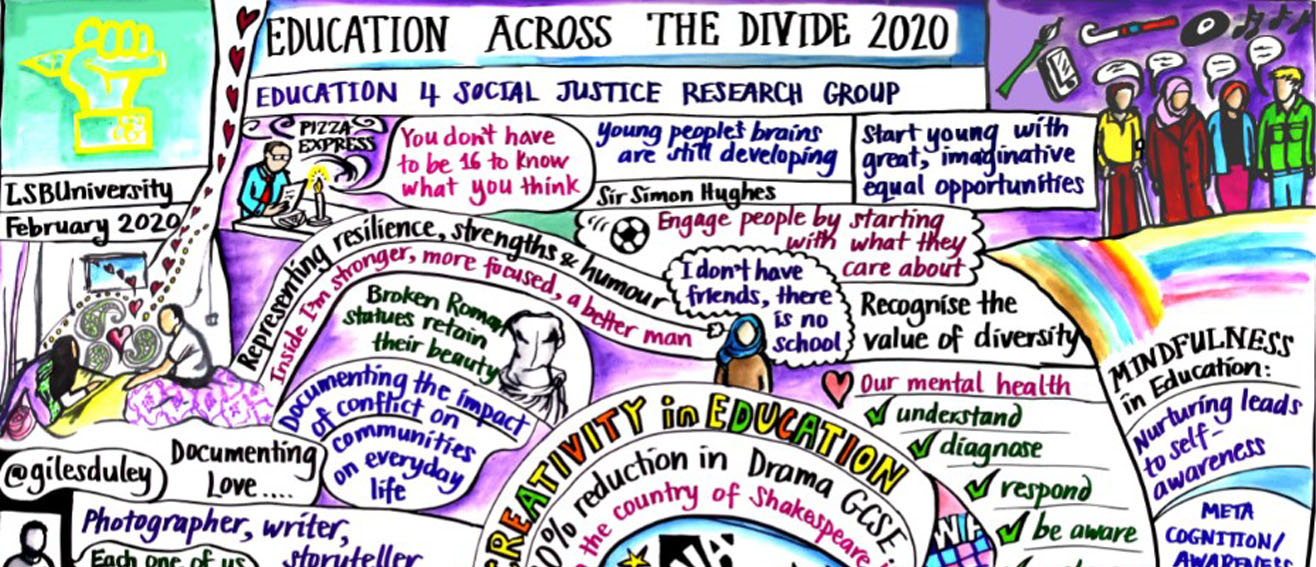 EDUCATION ACROSS THE DIVIDE 2020
EDUCATION 4 SOCIAL JUSTICE RESEARCH GROUP
LSBUniversity
February 2020
PIZZA
EXPRESS
You don't have
to be 16 to know
what you think
Young people's brains
are still developing
Sir Simon Hughes
Start young with
great, imaginative
equal opportunities
Engage people by starting
with what they
care about
Representing resilience, strengths & humour
Inside I'm stronger, more focused, a better man
I don't have
friends, there
is no
school
Recognise the
value of diversity
Broken Roman
statues retain
their beauty
Documenting the impact
of conflict on
communities
on everyday
life
@gilesduley
Documenting
Love....
Photographer, writer,
storyteller
Each one of us
CREATIVITY in EDUCATION
0% reduction in Drama GCSE
the country of Shakespeare
Our mental health
understand
diagnose
respond
be aware
MINDFULNESS
in Education:
Nurturing leads
to self-
awareness
META
COGNITION/
AWARENESS